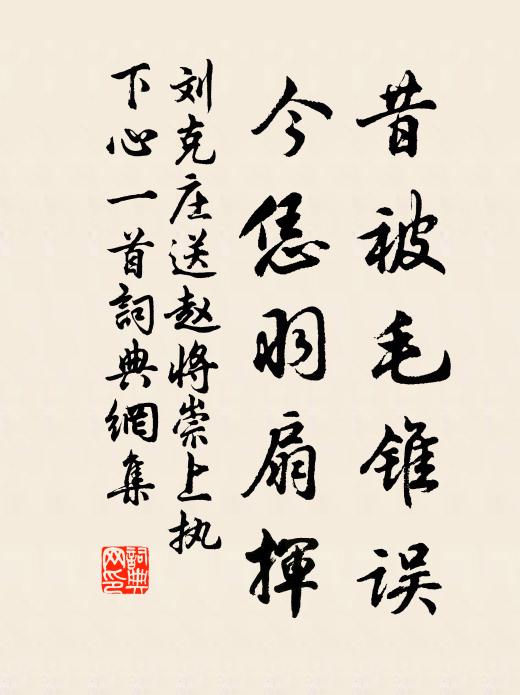 昔被毛锥误
今恁羽扇揮
刘克庄送赵将崇上执
下心一首詞典網集
詞典网印